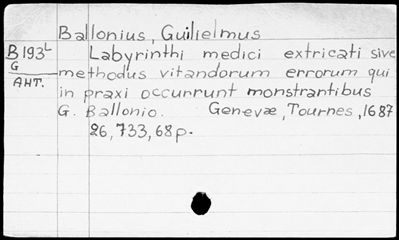 Ballonius, Guilielmus
B193L Labyrinthi medici extricati sive
G methodus vitandorum errorum qui
AHT. in praxi occurrunt monstrantibus
G. Ballonio. Genevæ, Tournes, 1687
26, 733, 68 p.